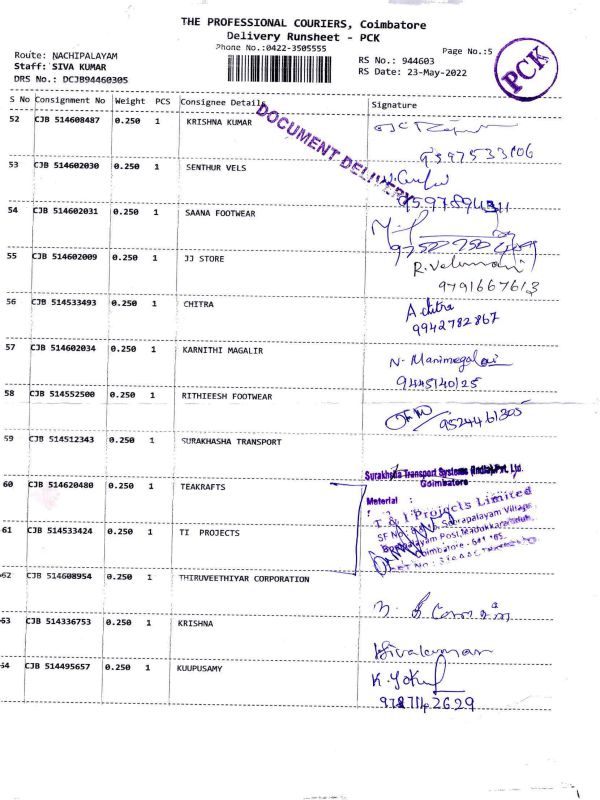 THE PROFESSIONAL COURIERS, Coimbatore
Delivery Runsheet - PCK
Phone No.:0422-3505555
Page No.:5
PCK
Route: NACHIPALAYAM
Staff: SIVA KUMAR
DRS No.: DCJB94460305
RS No.: 944603
RS Date: 23-May-2022
S No Consignment No Weight PCS Consignee Details Signature
DOCUMENT DELIVERY
52 CJB 514608487 0.250 1 KRISHNA KUMAR
9597533106
53 CJB 514602030 0.250 1 SENTHUR VELS
54 CJB 514602031 0.250 1 SAANA FOOTWEAR
55 CJB 514602009 0.250 1 JJ STORE R. Velumani
9791667613
56 CJB 514533493 0.250 1 CHITRA A chitra
9942782867
57 CJB 514602034 0.250 1 KARNITHI MAGALIR N. Manimegalai
9445140125
58 CJB 514552500 0.250 1 RITHIEESH FOOTWEAR
9524461305
59 CJB 514512343 0.250 1 SURAKHASHA TRANSPORT
Surakhsha Transport Systems (India) Pvt. Ltd.
Coimbatore
60 CJB 514620480 0.250 1 TEAKRAFTS
Material :
T & I Projects Limited
61 CJB 514533424 0.250 1 TI PROJECTS
Coimbatore - 641 105.
62 CJB 514608954 0.250 1 THIRUVEETHIYAR CORPORATION
63 CJB 514336753 0.250 1 KRISHNA
Sivakumar
64 CJB 514495657 0.250 1 KUUPUSAMY